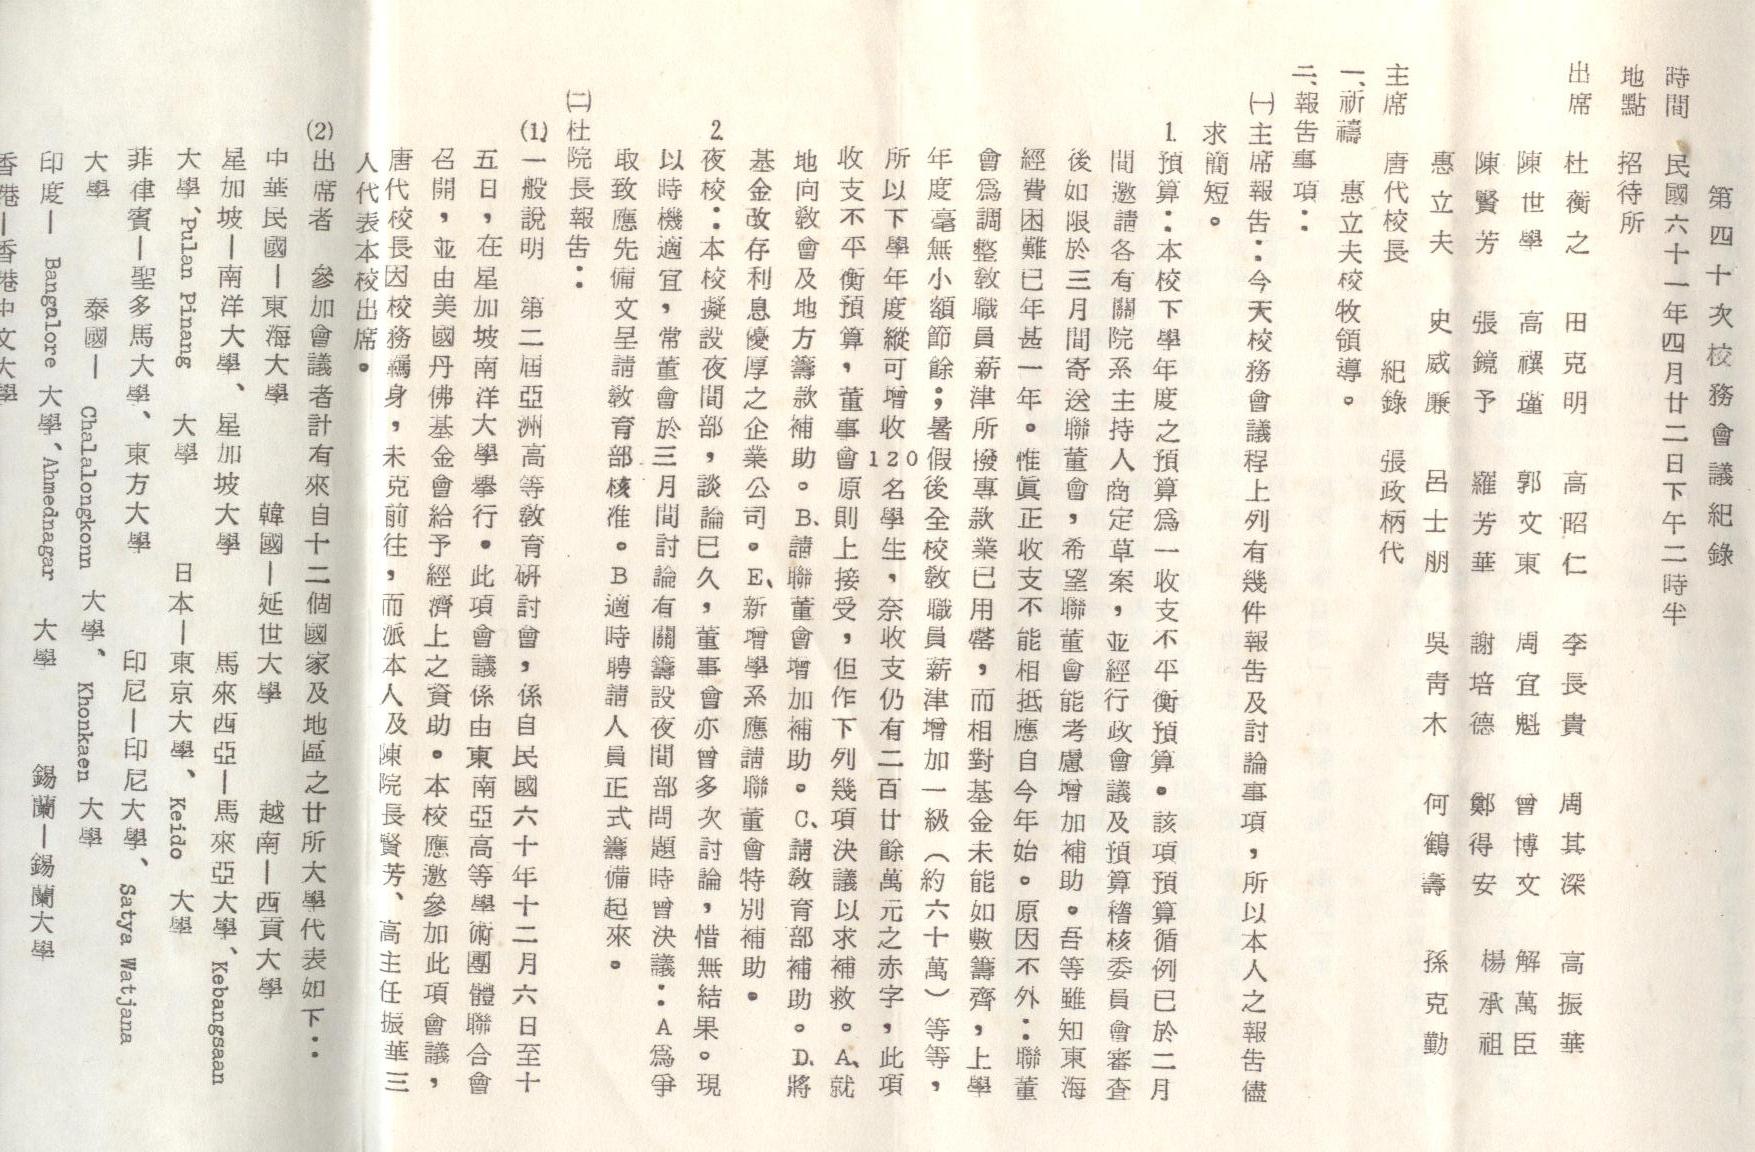 第四十次校務會議紀錄
時間 民國六十一年四月廿二日下午二時半
地點 招待所
出席 杜衡之 田克明 高昭仁 李長貴 周其深 高振華
陳世學 高禩瑾 郭文東 周宜魁 曾博文 解萬臣
陳賢芳 張鏡予 羅芳華 謝培德 鄭得安 楊承祖
惠立夫 史威廉 呂士朋 吳青木 何鶴壽 孫克勤
主席 唐代校長 紀錄 張政柄代
一、祈禱 惠立夫校牧領導。
二、報告事項：
㈠主席報告：今天校務會議程上列有幾件報告及討論事項，所以本人之報告儘
求簡短。
1.預算：本校下學年度之預算為一收支不平衡預算。該項預算循例已於二月
間邀請各有關院系主持人商定草案，並經行政會議及預算稽核委員會審查
後如限於三月間寄送聯董會，希望聯董會能考慮增加補助。吾等雖知東海
經費困難已年甚一年。惟眞正收支不能相抵應自今年始。原因不外：聯董
會為調整教職員薪津所撥專款業已用罄，而相對基金未能如數籌齊，上學
年度毫無小額節餘；暑假後全校教職員薪津增加一級（約六十萬）等等，
所以下學年度縱可增收120名學生，奈收支仍有二百廿餘萬元之赤字，此項
收支不平衡預算，董事會原則上接受，但作下列幾項決議以求補救。A、就
地向教會及地方籌款補助。B、請聯董會增加補助。C、請教育部補助。D、將
基金改存利息優厚之企業公司。E、新增學系應請聯董會特別補助。
2.夜校：本校擬設夜間部，談論已久，董事會亦曾多次討論，惜無結果。現
以時機適宜，常董會於三月間討論有關籌設夜間部問題時曾決議：A為爭
取致應先備文呈請教育部核准。B適時聘請人員正式籌備起來。
㈡杜院長報告：
(1)一般說明 第二屆亞洲高等教育研討會，係自民國六十年十二月六日至十
五日，在星加坡南洋大學舉行。此項會議係由東南亞高等學術團體聯合會
召開，並由美國丹佛基金會給予經濟上之資助。本校應邀參加此項會議，
唐代校長因校務羈身，未克前往，而派本人及陳院長賢芳、高主任振華三
人代表本校出席。
(2)出席者 參加會議者計有來自十二個國家及地區之廿所大學代表如下：
中華民國—東海大學 韓國—延世大學 越南—西貢大學
星加坡—南洋大學、星加坡大學 馬來西亞—馬來亞大學、Kebangsaan
大學、Pulan Pinang 大學 日本—東京大學、Keido 大學
菲律賓—聖多馬大學、東方大學 印尼—印尼大學、Satya Watjana
大學 泰國—Chalalongkonn 大學、Khonkaen 大學
印度—Bangalore 大學、Ahmednagar 大學 錫蘭—錫蘭大學
香港—香港中文大學